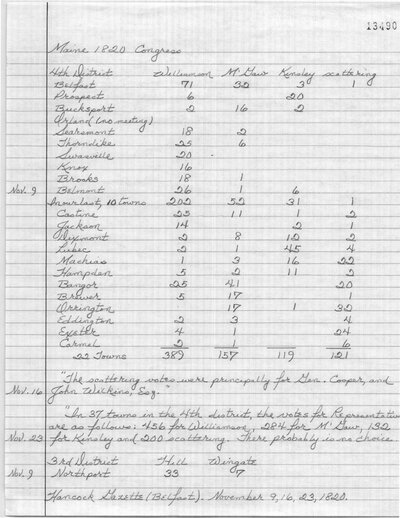 13490
Maine 1820 Congress
4th District Williamson McGaw Kinsley scattering
Belfast 71 32 3 1
Prospect 6 20
Bucksport 2 16 2
Orland (no meeting)
Searsmont 18 2
Thorndike 25 6
Swanville 20
Knox 16
Brooks 18 1
Nov. 9 Belmont 26 1 6
In our last, 10 towns 202 52 31 1
Castine 25 11 1 2
Jackson 14 2 1
Dixmont 2 8 12 2
Lubec 2 1 45 4
Machias 1 3 16 22
Hampden 5 2 11 2
Bangor 25 41 20
Brewer 5 17 1
Orrington 17 1 32
Eddington 2 3 4
Exeter 4 1 24
Carmel 2 1 6
22 Towns 389 157 119 121
"The scattering votes were principally for Gen. Cooper, and
Nov. 16 John Wilkins, Esq."
"In 37 towns in the 4th district, the votes for Representative
are as follows: 456 for Williamson, 284 for McGaw, 132
Nov. 23 for Kinsley and 200 scattering. There probably is no choice.
3rd District Hill Wingate
Nov. 9 Northport 33 7
Hancock Gazette (Belfast). November 9, 16, 23, 1820.